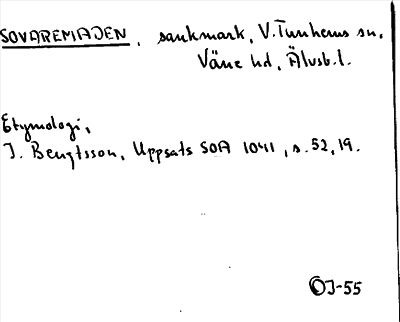 SOVAREMADEN, sankmark, V. Tunhems sn,
Väne hd, Älvsb. l.
Etymologi,
J. Bengtsson, Uppsats SOA 1041, s. 52, 19.
OJ-55